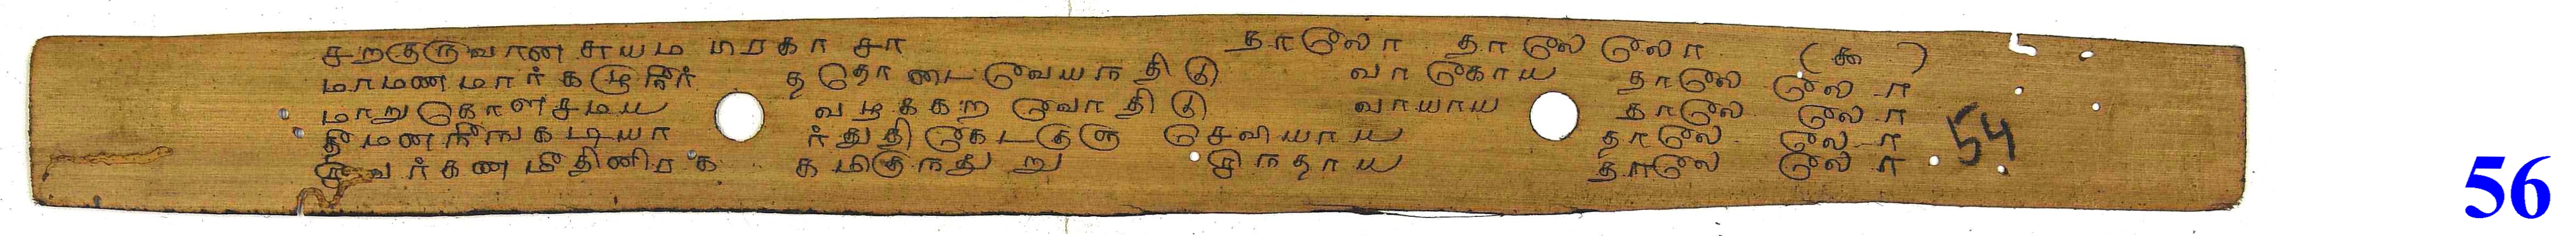 சறகுருவான சுயம பரகா சா தாலோ தா லே லோ (௯)
மாமண மார் கழுநீர் த தோ டை வேய நதி டு வா கோய தாலே லோ
மாறு கொள சமய வழககற வோதிடு வாயாய தாலே லோ
தீமணநீஙகடியா ர்துதி கேடகுரு செவியாய தாலே லோ
சிவர்கண மீதினிர க கமிகுநது று சிநதாய தாலே லோ
54
56